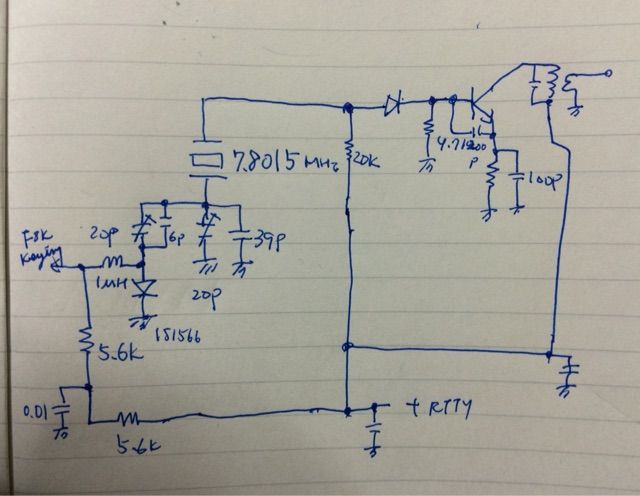 7.8015 MHz
20K
100P
FSK
Keying
20p
6p
39p
1MH
20p
1S1566
5.6K
0.01
5.6K
+ RTTY